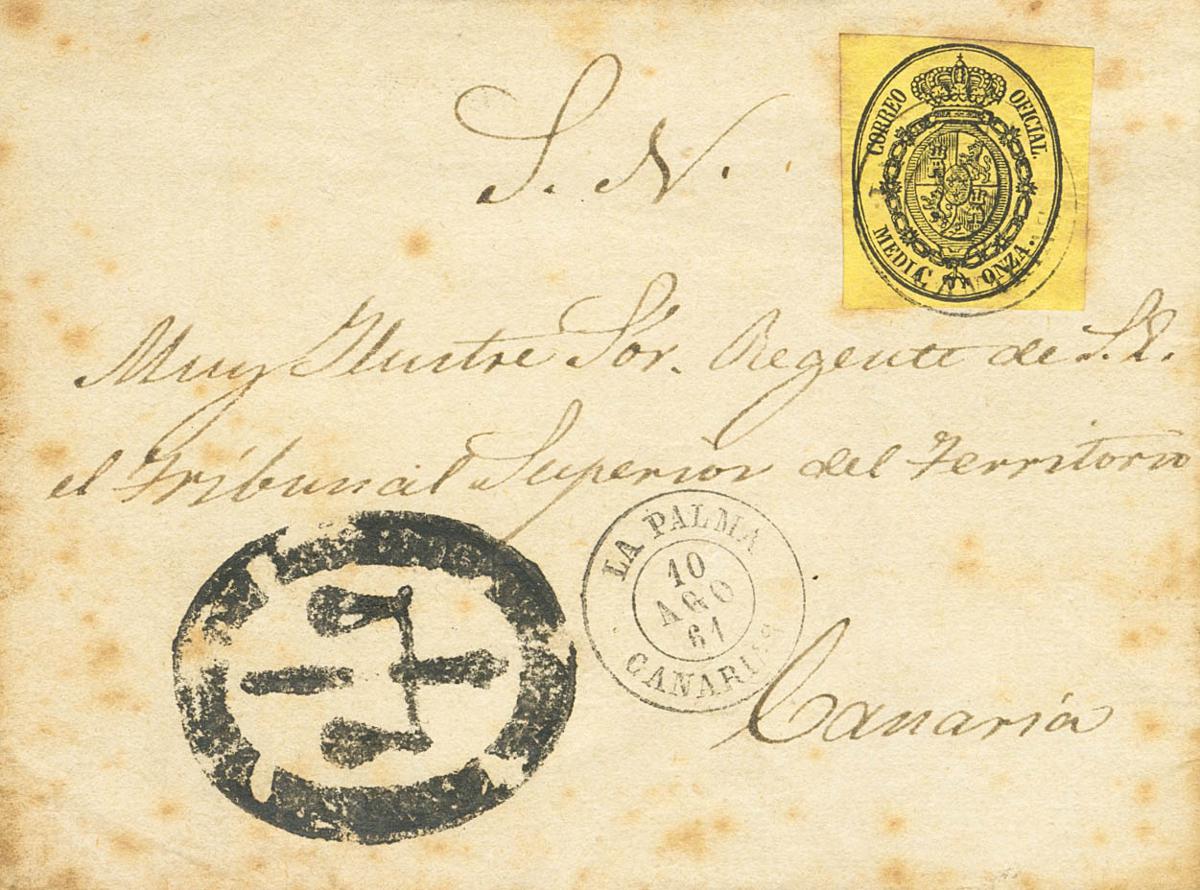 S. N.
CORREO OFICIAL.
MEDIA ONZA.
Muy Ilustre Sor. Regente de S.
el Tribunal Superior del Territorio
LA PALMA
10
AGO
61
CANARIAS
Canaria